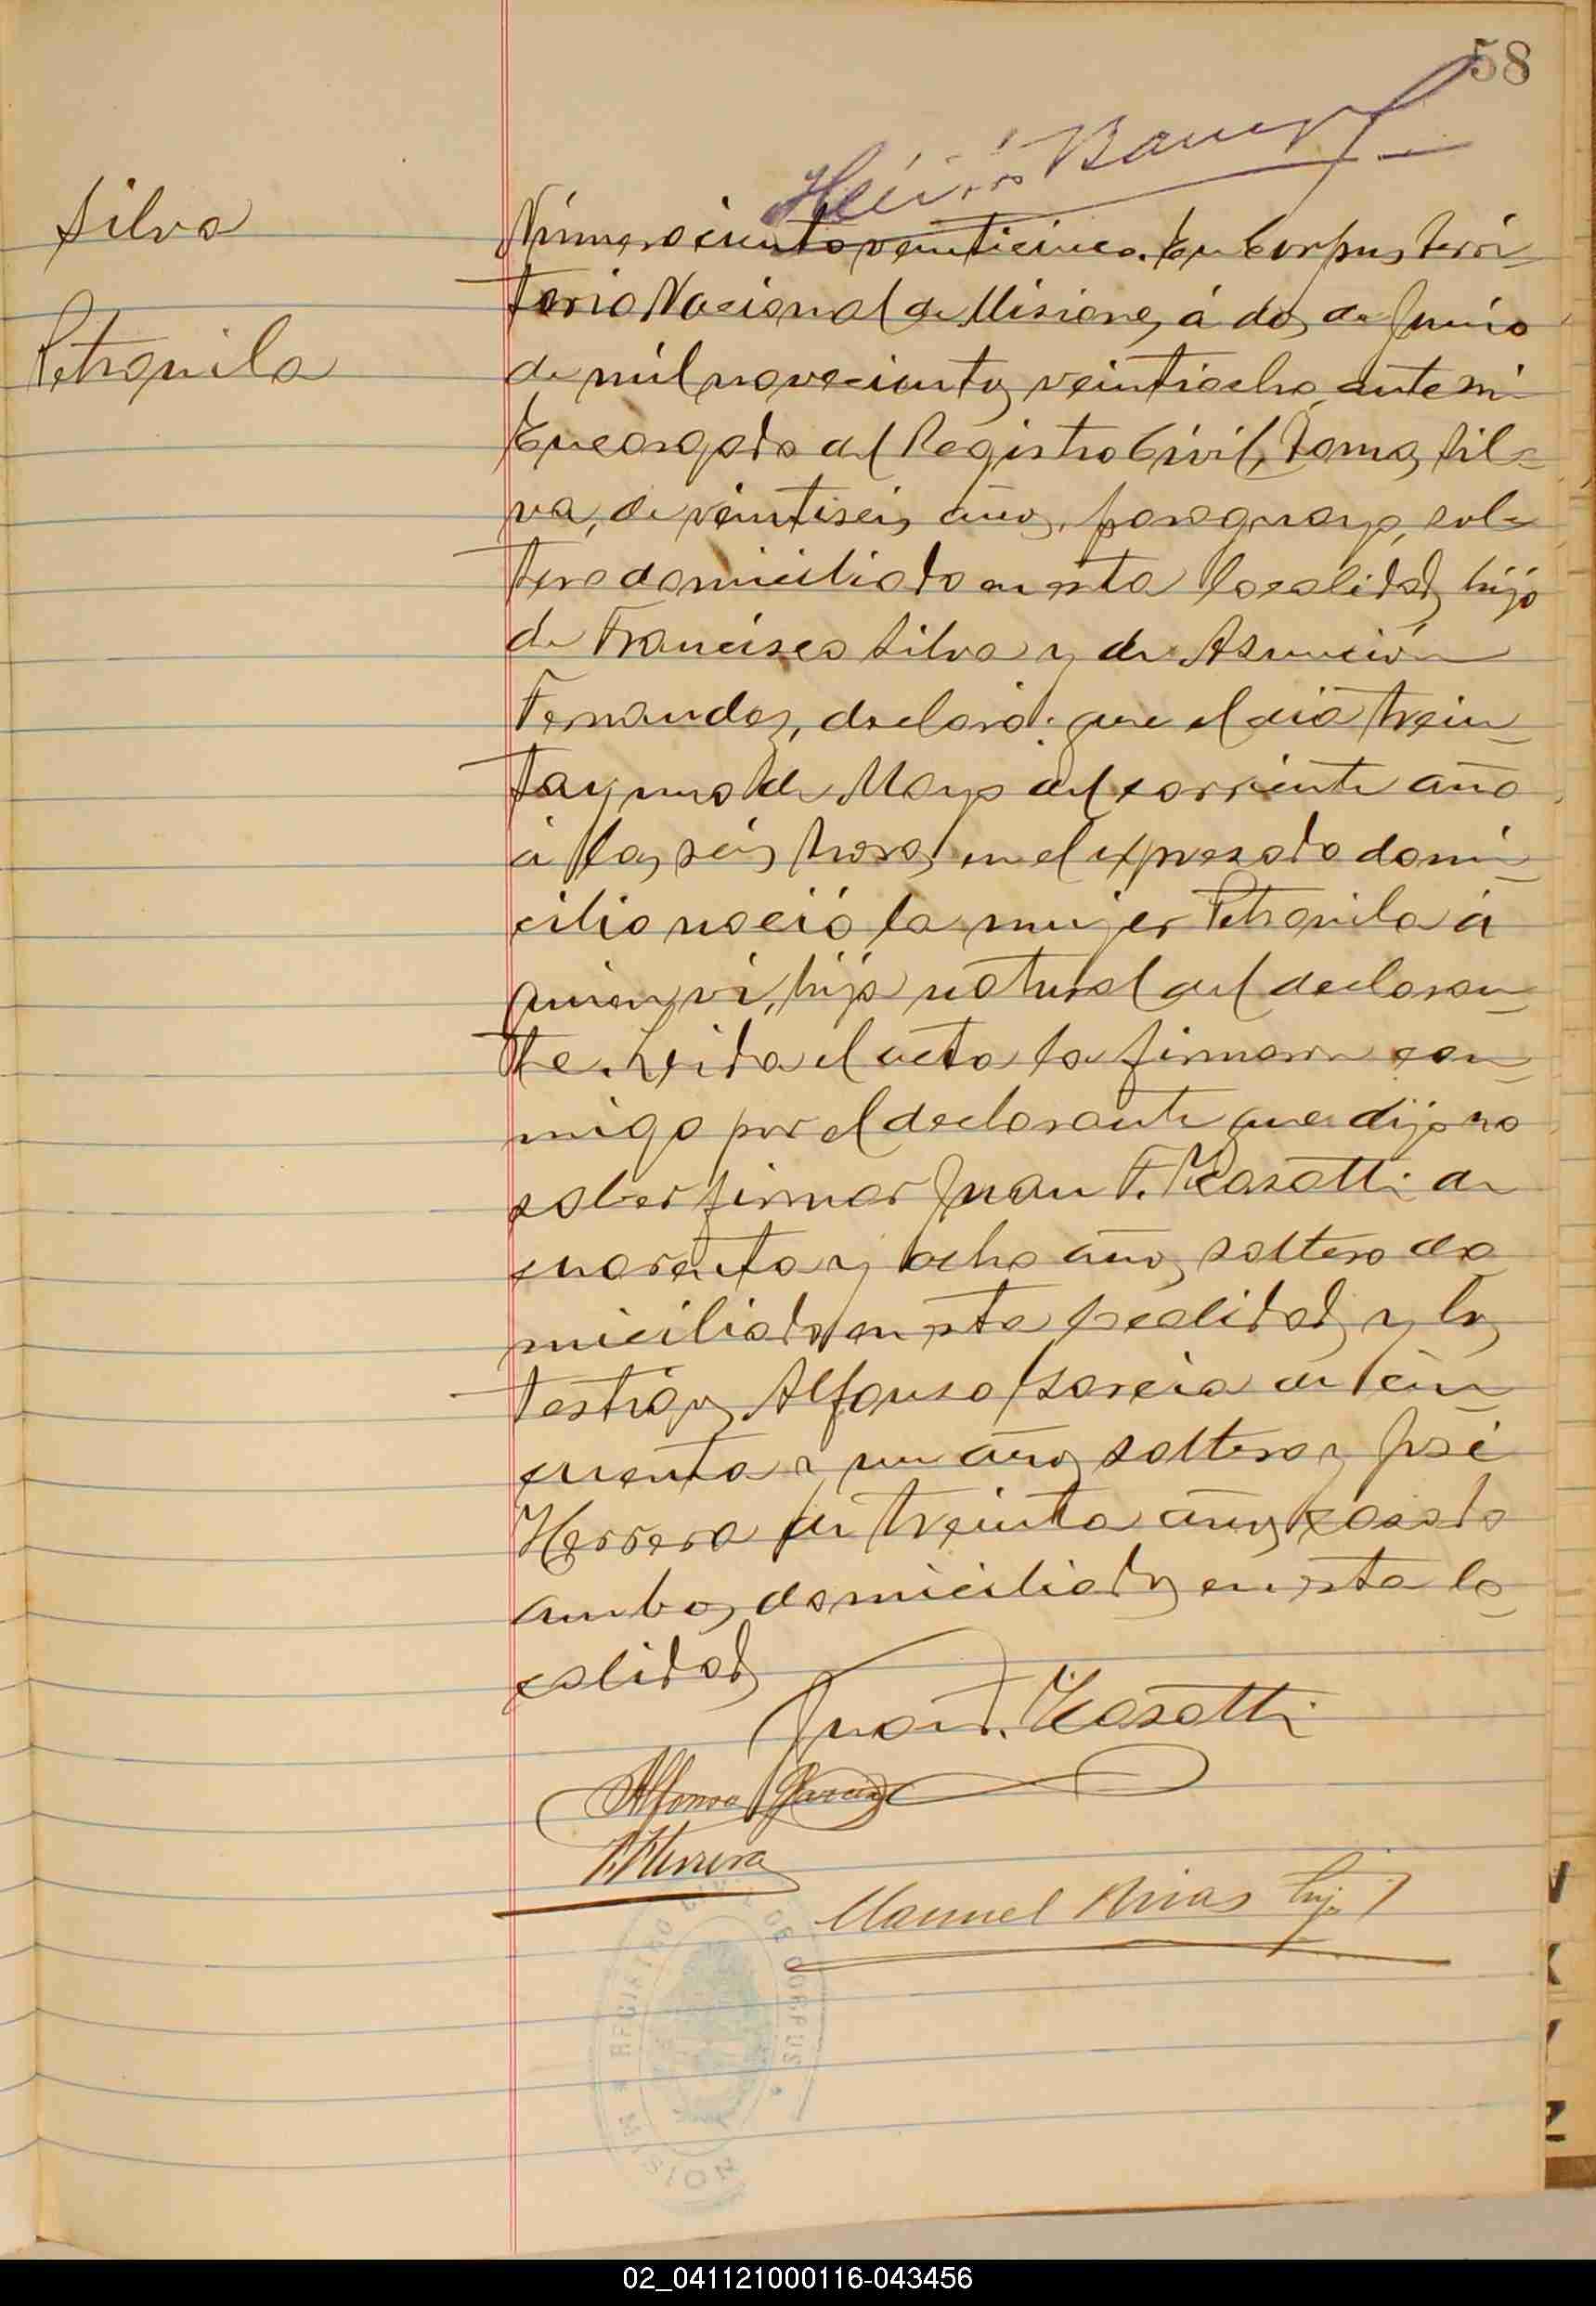 58
Silva
Petronila
Número ciento veinticinco. En Corpus Terri-
torio Nacional de Misiones, á dos de Junio
de mil novecientos veintiocho, ante mi
Encargado del Registro Civil, Tomas Sil-
va, de veintiseis años, paraguayo, sol-
tero domiciliado en esta localidad, hijo
de Francisco Silva y de Asunción
Fernandez, declaró: que el dia trein-
ta y uno de Mayo del corriente año
á las seis horas en el expresado domi-
cilio nació la mujer Petronila á
quien vi, hija natural del declaran-
te. Leida el acta la firmaron con-
migo por el declarante que dijo no
saber firmar Juan F. Casatti de
cuarenta y ocho años, soltero do
miciliado en esta localidad, y los
testigos Alfonso Garcia de cin-
cuenta y un años soltero y José
Herrera de treinta años, casado
ambos, domiciliados en esta lo-
calidad
Juan F. Casatti
Alfonso Garcia
J. Herrera
Manuel Arias hijo
REGISTRO CIVIL DE CORPUS
MISIONES
V
X
Y
Z
02_041121000116-043456